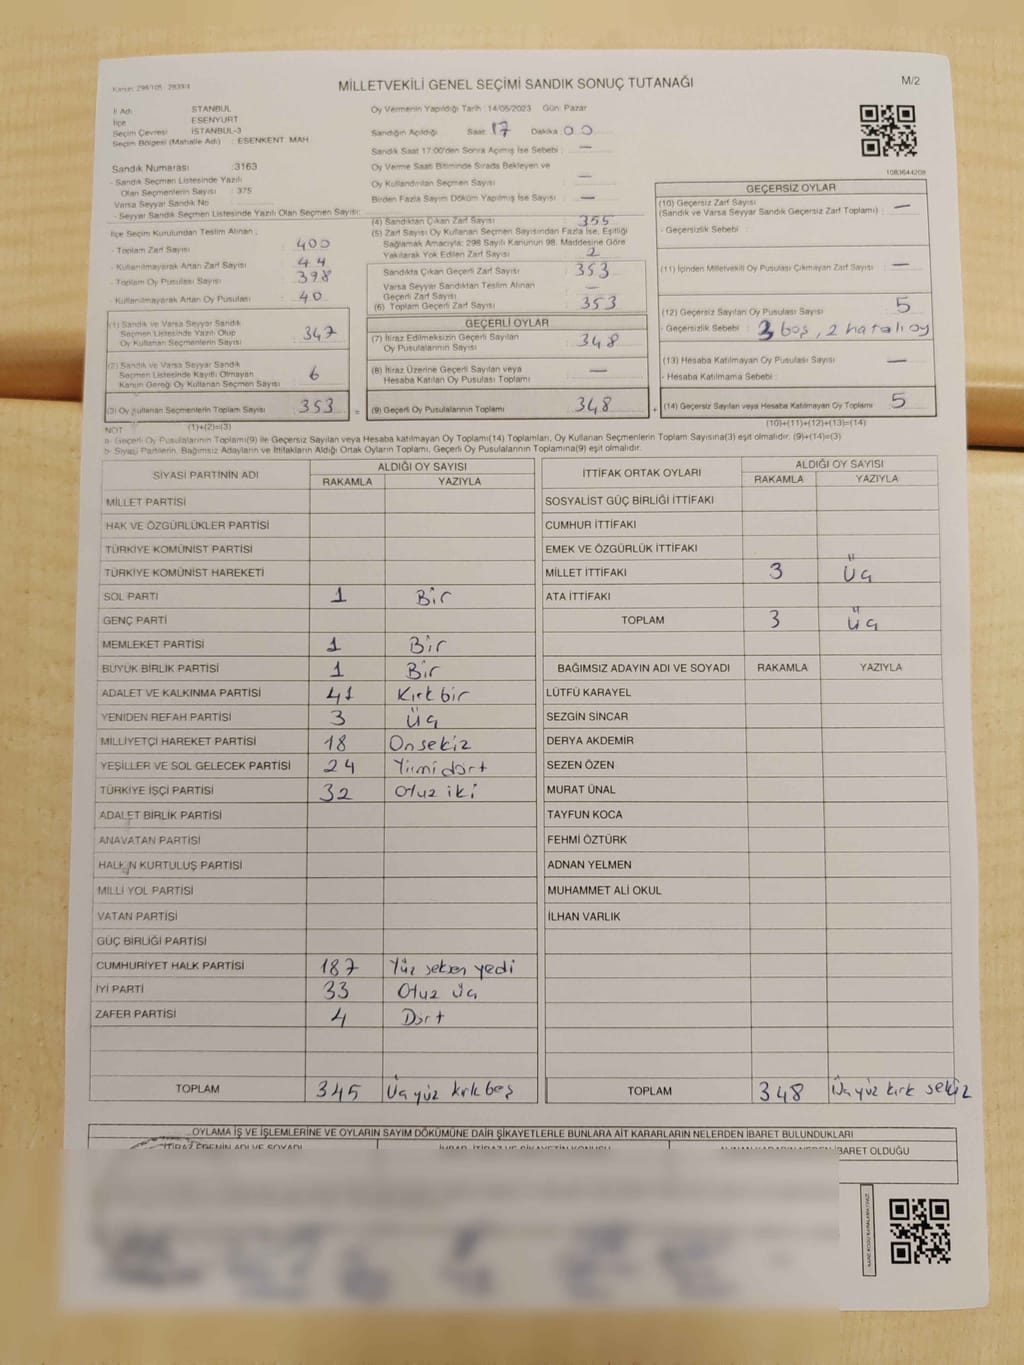 Kanun: 298/105 - 2839/4
MİLLETVEKİLİ GENEL SEÇİMİ SANDIK SONUÇ TUTANAĞI
M/2
İl Adı : İSTANBUL
İlçe : ESENYURT
Seçim Çevresi : İSTANBUL-3
Seçim Bölgesi (Mahalle Adı) : ESENKENT MAH
Sandık Numarası :3163
- Sandık Seçmen Listesinde Yazılı
Olan Seçmenlerin Sayısı : 375
Varsa Seyyar Sandık No
- Seyyar Sandık Listesinde Yazılı Olan Seçmen Sayısı:
İlçe Seçim Kurulundan Teslim Alınan :
- Toplam Zarf Sayısı : 400
- Kullanılmayarak Artan Zarf Sayısı : 44
- Toplam Oy Pusulası Sayısı : 398
- Kullanılmayarak Artan Oy Pusulası : 40
(1) Sandık ve Varsa Seyyar Sandık
Seçmen Listesinde Yazılı Olup
Oy Kullanan Seçmenlerin Sayısı : 347
(2) Sandık ve Varsa Seyyar Sandık
Seçmen Listesinde Kayıtlı Olmayan
Kanun Gereği Oy Kullanan Seçmen Sayısı : 6
(3) Oy Kullanan Seçmenlerin Toplam Sayısı : 353
NOT (1)+(2)=(3)
Oy Vermenin Yapıldığı Tarih : 14/05/2023 Gün: Pazar
Sandığın Açıldığı Saat: 17 Dakika: 00
Sandık Saat 17:00'den Sonra Açılmış İse Sebebi : —
Oy Verme Saati Bitiminde Sırada Bekleyen ve
Oy Kullandırılan Seçmen Sayısı : —
Birden Fazla Sayım Döküm Yapılmış İse Sayısı : —
(4) Sandıktan Çıkan Zarf Sayısı : 355
(5) Zarf Sayısı Oy Kullanan Seçmen Sayısından Fazla İse, Eşitliği
Sağlamak Amacıyla; 298 Sayılı Kanunun 98. Maddesine Göre
Yakılarak Yok Edilen Zarf Sayısı : 2
Sandıkta Çıkan Geçerli Zarf Sayısı : 353
Varsa Seyyar Sandıktan Teslim Alınan
Geçerli Zarf Sayısı : —
(6) Toplam Geçerli Zarf Sayısı : 353
GEÇERLİ OYLAR
(7) İtiraz Edilmeksizin Geçerli Sayılan
Oy Pusulalarının Sayısı : 348
(8) İtiraz Üzerine Geçerli Sayılan veya
Hesaba Katılan Oy Pusulası Toplamı : —
= (9) Geçerli Oy Pusulalarının Toplamı : 348
1083644208
GEÇERSİZ OYLAR
(10) Geçersiz Zarf Sayısı
(Sandık ve Varsa Seyyar Sandık Geçersiz Zarf Toplamı) : —
- Geçersizlik Sebebi :
(11) İçinden Milletvekili Oy Pusulası Çıkmayan Zarf Sayısı : —
(12) Geçersiz Sayılan Oy Pusulası Sayısı : 5
- Geçersizlik Sebebi : 3 boş, 2 hatalı oy
(13) Hesaba Katılmayan Oy Pusulası Sayısı : —
- Hesaba Katılmama Sebebi :
+ (14) Geçersiz Sayılan veya Hesaba Katılmayan Oy Toplamı : 5
(10)+(11)+(12)+(13)=(14)
a- Geçerli Oy Pusulalarının Toplamı(9) ile Geçersiz Sayılan veya Hesaba katılmayan Oy Toplamı(14) Toplamları, Oy Kullanan Seçmenlerin Toplam Sayısına(3) eşit olmalıdır. (9)+(14)=(3)
b- Siyasi Partilerin, Bağımsız Adayların ve İttifakların Aldığı Ortak Oyların Toplamı, Geçerli Oy Pusulalarının Toplamına(9) eşit olmalıdır.
SİYASİ PARTİNİN ADI ALDIĞI OY SAYISI
RAKAMLA YAZIYLA
MİLLET PARTİSİ
HAK VE ÖZGÜRLÜKLER PARTİSİ
TÜRKİYE KOMÜNİST PARTİSİ
TÜRKİYE KOMÜNİST HAREKETİ
SOL PARTİ 1 Bir
GENÇ PARTİ
MEMLEKET PARTİSİ 1 Bir
BÜYÜK BİRLİK PARTİSİ 1 Bir
ADALET VE KALKINMA PARTİSİ 41 Kırk bir
YENİDEN REFAH PARTİSİ 3 Üç
MİLLİYETÇİ HAREKET PARTİSİ 18 Onsekiz
YEŞİLLER VE SOL GELECEK PARTİSİ 24 Yirmi dört
TÜRKİYE İŞÇİ PARTİSİ 32 Otuz iki
ADALET BİRLİK PARTİSİ
ANAVATAN PARTİSİ
HALKIN KURTULUŞ PARTİSİ
MİLLİ YOL PARTİSİ
VATAN PARTİSİ
GÜÇ BİRLİĞİ PARTİSİ
CUMHURİYET HALK PARTİSİ 187 Yüz seksen yedi
İYİ PARTİ 33 Otuz üç
ZAFER PARTİSİ 4 Dört
TOPLAM 345 Üç yüz kırk beş
İTTİFAK ORTAK OYLARI ALDIĞI OY SAYISI
RAKAMLA YAZIYLA
SOSYALİST GÜÇ BİRLİĞİ İTTİFAKI
CUMHUR İTTİFAKI
EMEK VE ÖZGÜRLÜK İTTİFAKI
MİLLET İTTİFAKI 3 Üç
ATA İTTİFAKI
TOPLAM 3 Üç
BAĞIMSIZ ADAYIN ADI VE SOYADI RAKAMLA YAZIYLA
LÜTFÜ KARAYEL
SEZGİN SİNCAR
DERYA AKDEMİR
SEZEN ÖZEN
MURAT ÜNAL
TAYFUN KOCA
FEHMİ ÖZTÜRK
ADNAN YELMEN
MUHAMMET ALİ OKUL
İLHAN VARLIK
TOPLAM 348 Üç yüz kırk sekiz
OYLAMA İŞ VE İŞLEMLERİNE VE OYLARIN SAYIM DÖKÜMÜNE DAİR ŞİKAYETLERLE BUNLARA AİT KARARLARIN NELERDEN İBARET BULUNDUKLARI
İTİRAZ EDENİN ADI VE SOYADI
İBARET OLDUĞU